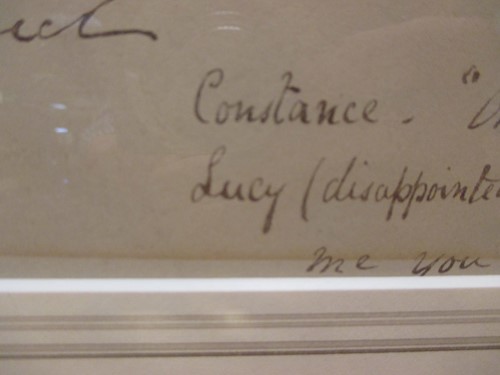 Constance - "
Lucy (disappointed
me you